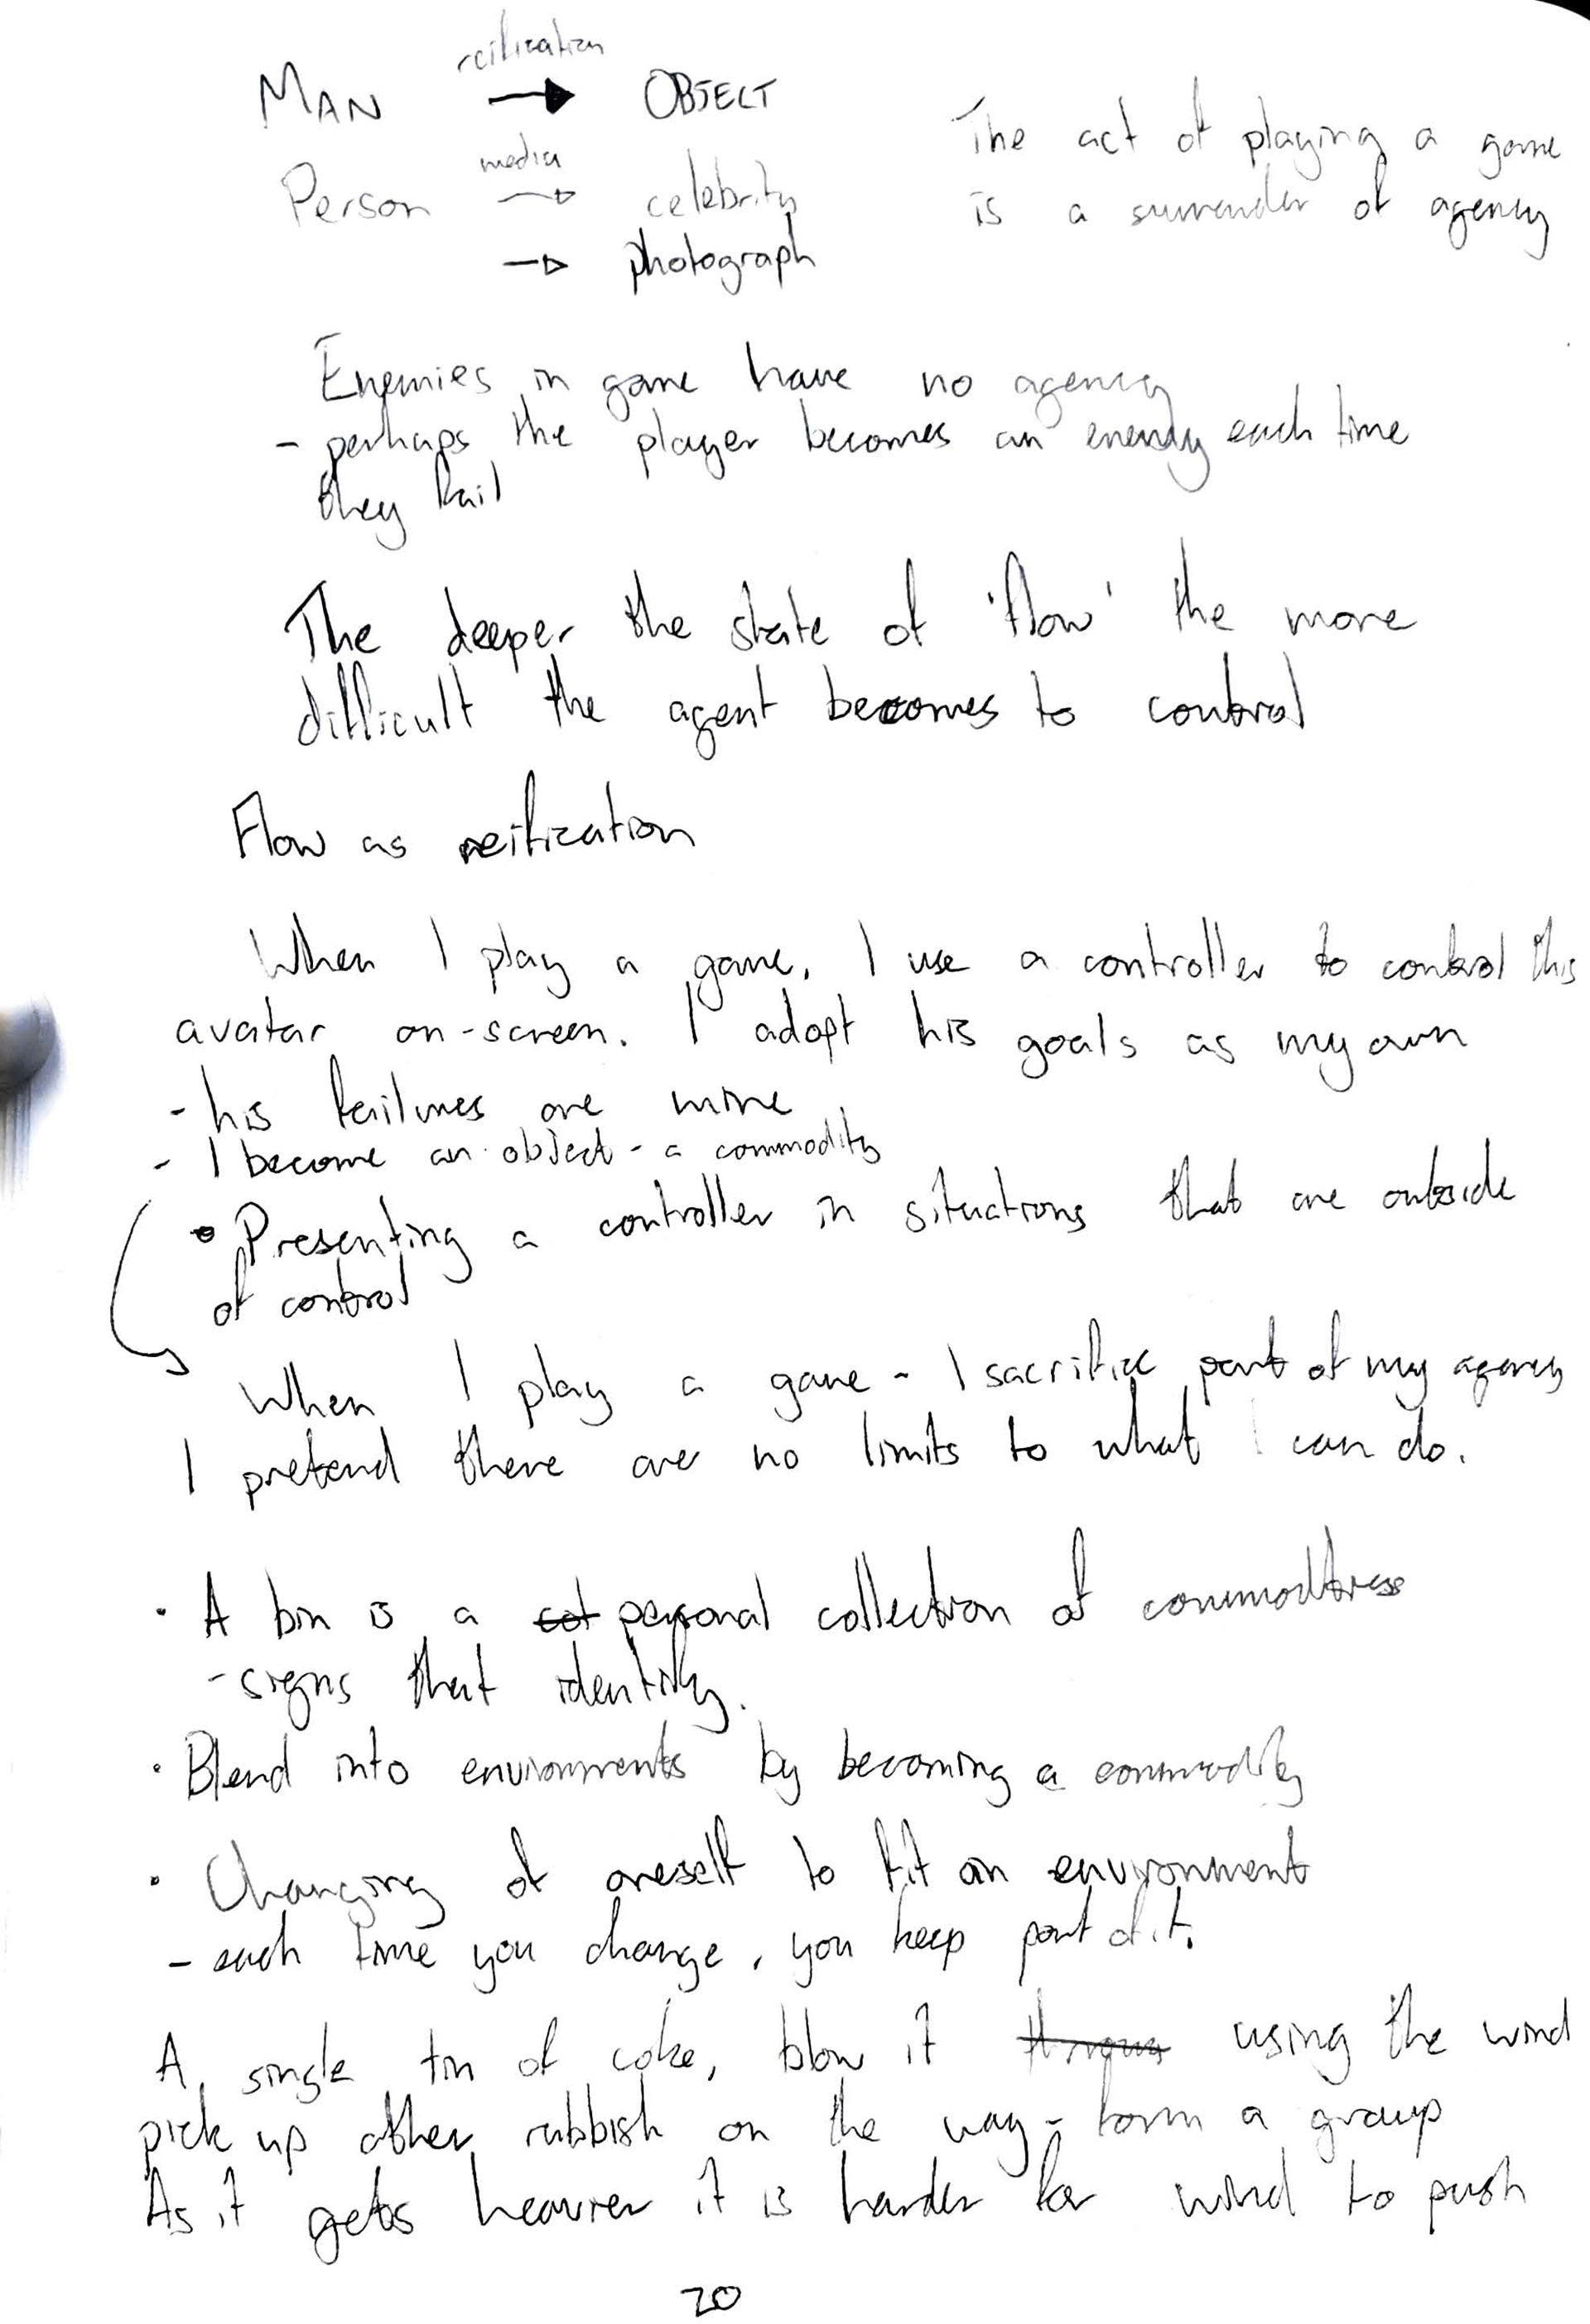 reification
MAN → OBJECT
media
Person → celebrity
→ photograph
The act of playing a game
is a surrender of agency
Enemies in game have no agency
- perhaps the player becomes an enemy each time
they fail
The deeper the state of 'flow' the more
difficult the agent becomes to control
Flow as reification
When I play a game, I use a controller to control this
avatar on-screen. I adopt his goals as my own
- his failures are mine
- I become an object - a commodity
• Presenting a controller in situations that are outside
of control
When I play a game - I sacrifice part of my agency
I pretend there are no limits to what I can do.
· A bin is a personal collection of commodities
- signs that identify.
· Blend into environments by becoming a commodity
· Changing of oneself to fit an environment
- each time you change, you keep part of it.
A single tin of coke, blow it using the wind
pick up other rubbish on the way - form a group
As it gets heavier it is harder for wind to push
20